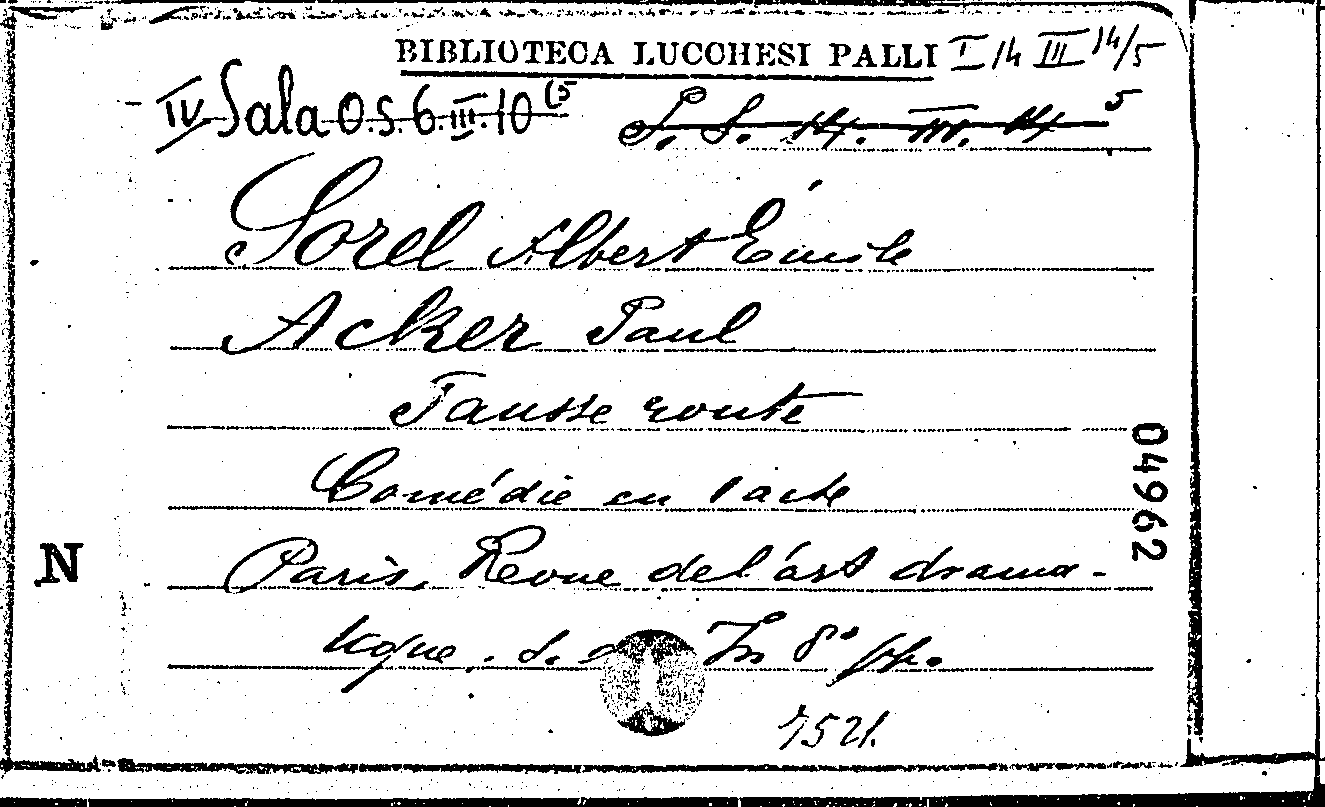 BIBLIOTECA LUCCHESI PALLI I 14 III 14/5
IV Sala O.S. 6.III.10 (5
S. S. 14. III. 14 5
Sorel Albert Émile
Acker Paul
Fausse route
Comédie en 1 acte
Paris, Revue de l'art drama-
tique, s. d. In 8° pp.
7521.
N
04962